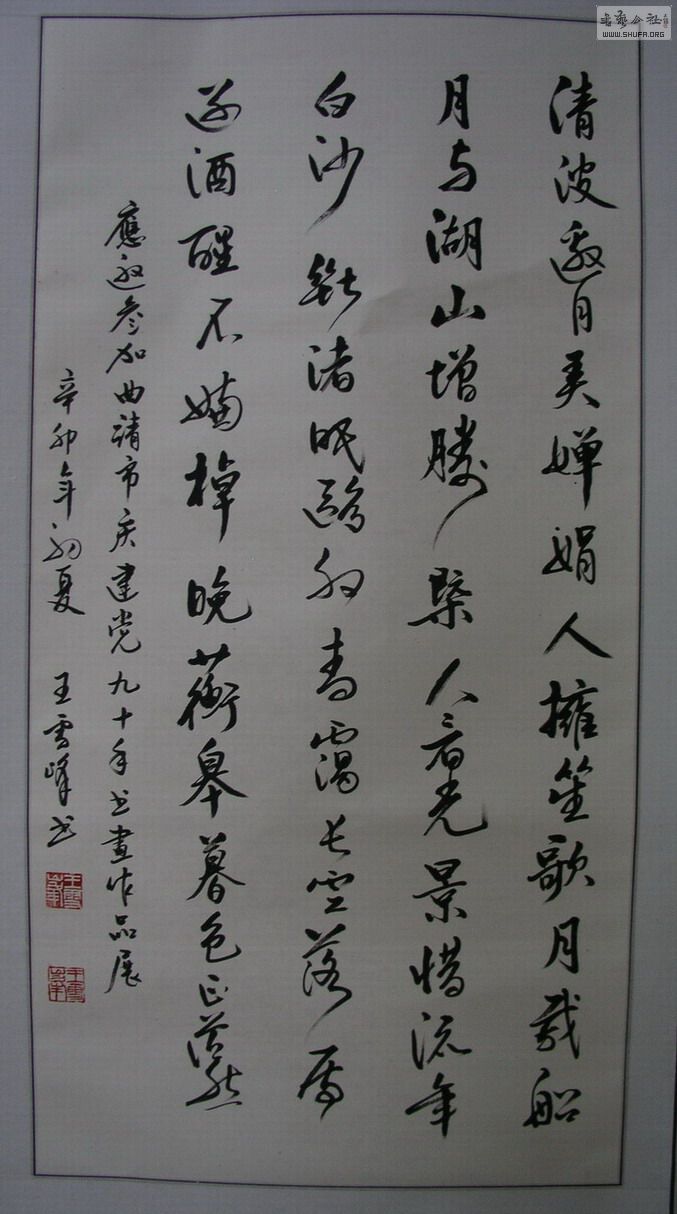 清波邀月美嬋娟人擁笙歌月載船
月与湖山增勝槩人看光景惜流年
白沙断渚眠鷗外青靄長空落雁
邊酒醒不嫌棹晚蘅皋暮色正蒼然
應邀参加曲靖市庆建党九十年书畫作品展
辛卯年初夏 王雪峰书
书艺公社
WWW.SHUFA.ORG